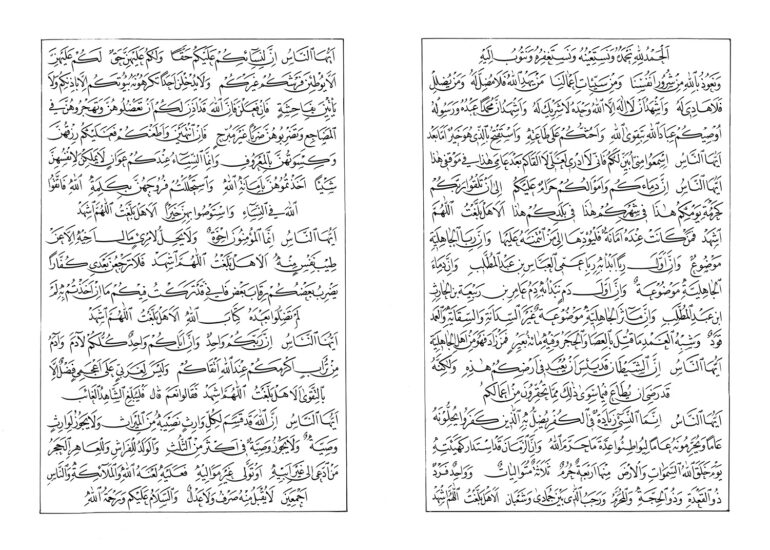 الحمد لله نحمده ونستعينه ونستغفره ونتوب إليه
ونعوذ بالله من شرور أنفسنا ومن سيئات أعمالنا من يهد الله فلا مضل له ومن يضلل
فلا هادي له وأشهد أن لا إله إلا الله وحده لا شريك له وأشهد أن محمدا عبده ورسوله
أوصيكم عباد الله بتقوى الله وأحثكم على طاعته وأستفتح بالذي هو خير أما بعد
أيها الناس اسمعوا مني أبين لكم فإني لا أدري لعلي لا ألقاكم بعد عامي هذا في موقفي هذا
أيها الناس إن دماءكم وأموالكم حرام عليكم إلى أن تلقوا ربكم
كحرمة يومكم هذا في شهركم هذا في بلدكم هذا ألا هل بلغت اللهم
اشهد فمن كانت عنده أمانة فليؤدها إلى من ائتمنه عليها وإن ربا الجاهلية
موضوع وإن أولى ربا أبدأ به ربا عمي العباس بن عبد المطلب وإن دماء
الجاهلية موضوعة وإن أولى دم نبدأ به دم عامر بن ربيعة بن الحارث
ابن عبد المطلب وإن مآثر الجاهلية موضوعة غير السدانة والسقاية والعمد
قود وشبه العمد ما قتل بالعصا والحجر وفيه مائة بعير فمن زاد فهو من أهل الجاهلية
أيها الناس إن الشيطان قد يئس أن يعبد في أرضكم هذه ولكنه
قد رضي أن يطاع فيما سوى ذلك مما تحقرون من أعمالكم
أيها الناس إنما النسيء زيادة في الكفر يضل به الذين كفروا يحلونه
عاما ويحرمونه عاما ليواطئوا عدة ما حرم الله وإن الزمان قد استدار كهيئته
يوم خلق الله السموات والأرض منها أربعة حرم ثلاثة متواليات وواحد فرد
ذو القعدة وذو الحجة والمحرم ورجب الذي بين جمادى وشعبان ألا هل بلغت اللهم اشهد
أيها الناس إن لنسائكم عليكم حقا ولكم عليهن حق لكم عليهن
ألا يوطئن فرشكم غيركم ولا يدخلن أحدا تكرهونه بيوتكم إلا بإذنكم ولا
يأتين بفاحشة فإن فعلن فإن الله قد أذن لكم أن تعضلوهن وتهجروهن في
المضاجع وتضربوهن ضربا غير مبرح فإن انتهين وأطعنكم فعليكم رزقهن
وكسوتهن بالمعروف وإنما النساء عندكم عوان لا يملكن لأنفسهن
شيئا أخذتموهن بأمانة الله واستحللتم فروجهن بكلمة الله فاتقوا
الله في النساء واستوصوا بهن خيرا ألا هل بلغت اللهم اشهد
أيها الناس إنما المؤمنون إخوة ولا يحل لامرئ مال أخيه إلا عن
طيب نفس منه ألا هل بلغت اللهم اشهد فلا ترجعن بعدي كفارا
يضرب بعضكم رقاب بعض فإني قد تركت فيكم ما إن أخذتم به لم
تضلوا بعده كتاب الله ألا هل بلغت اللهم اشهد
أيها الناس إن ربكم واحد وإن أباكم واحد كلكم لآدم وآدم
من تراب أكرمكم عند الله أتقاكم وليس لعربي على أعجمي فضل إلا
بالتقوى ألا هل بلغت اللهم اشهد فقالوا نعم قال فليبلغ الشاهد الغائب
أيها الناس إن الله قد قسم لكل وارث نصيبه من الميراث ولا يجوز لوارث
وصية ولا يجوز وصية في أكثر من الثلث والولد للفراش وللعاهر الحجر
من ادعى إلى غير أبيه أو تولى غير مواليه فعليه لعنة الله والملائكة والناس
أجمعين لا يقبل منه صرف ولا عدل والسلام عليكم ورحمة الله